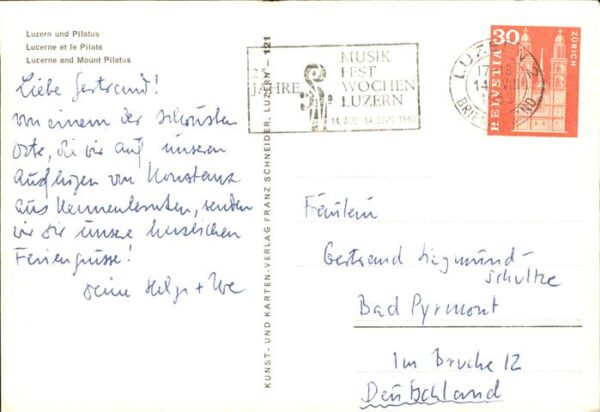 Luzern und Pilatus
Lucerne et le Pilate
Lucerne and Mount Pilatus
Liebe Gertraud!
Von einem der schönsten
Orte, die wir auf unseren
Ausflügen von Konstanz
aus kennenlernten, senden
wir Dir unsere herzlichen
Feriengrüsse!
Deine Helga + Uwe
KUNST- UND KARTEN-VERLAG FRANZ SCHNEIDER, LUZERN — 121
25
JAHRE
MUSIK
FEST
WOCHEN
LUZERN
14. AUG.-14. SEPT. 1963
LUZERN 2
17
14. VIII
HELVETIA 30
ZÜRICH
Fräulein
Gertraud Siegmund-
Schultze
Bad Pyrmont
Im Bruche 12
Deutschland